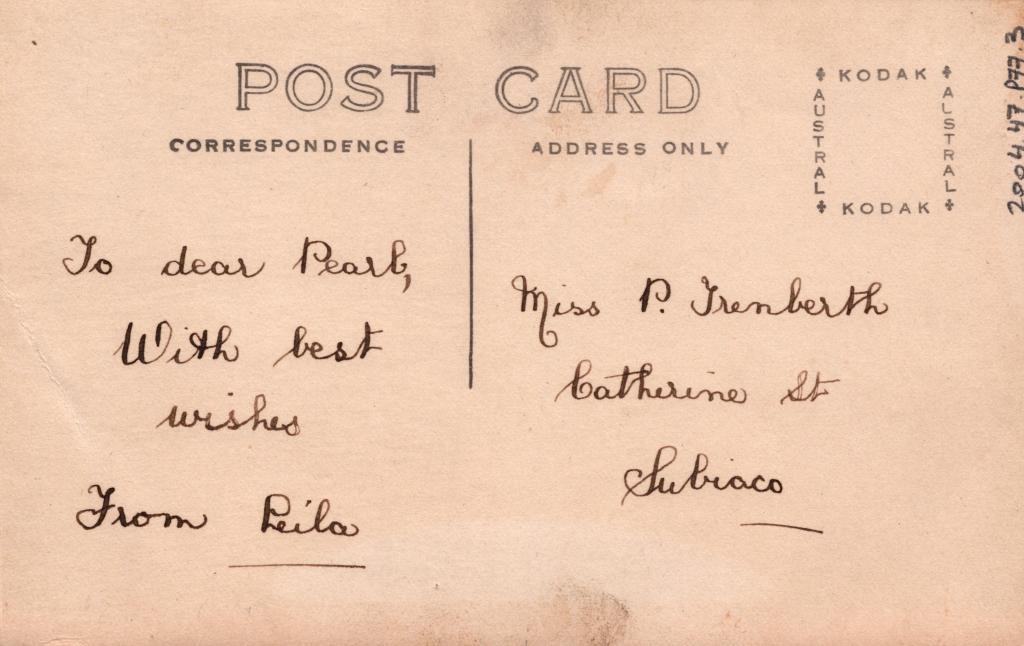 POST CARD
CORRESPONDENCE
ADDRESS ONLY
KODAK
AUSTRAL
AUSTRAL
KODAK
2004.47.P77.3
To dear Pearl,
With best
wishes
From Leila
Miss P. Trenberth
Catherine St
Subiaco